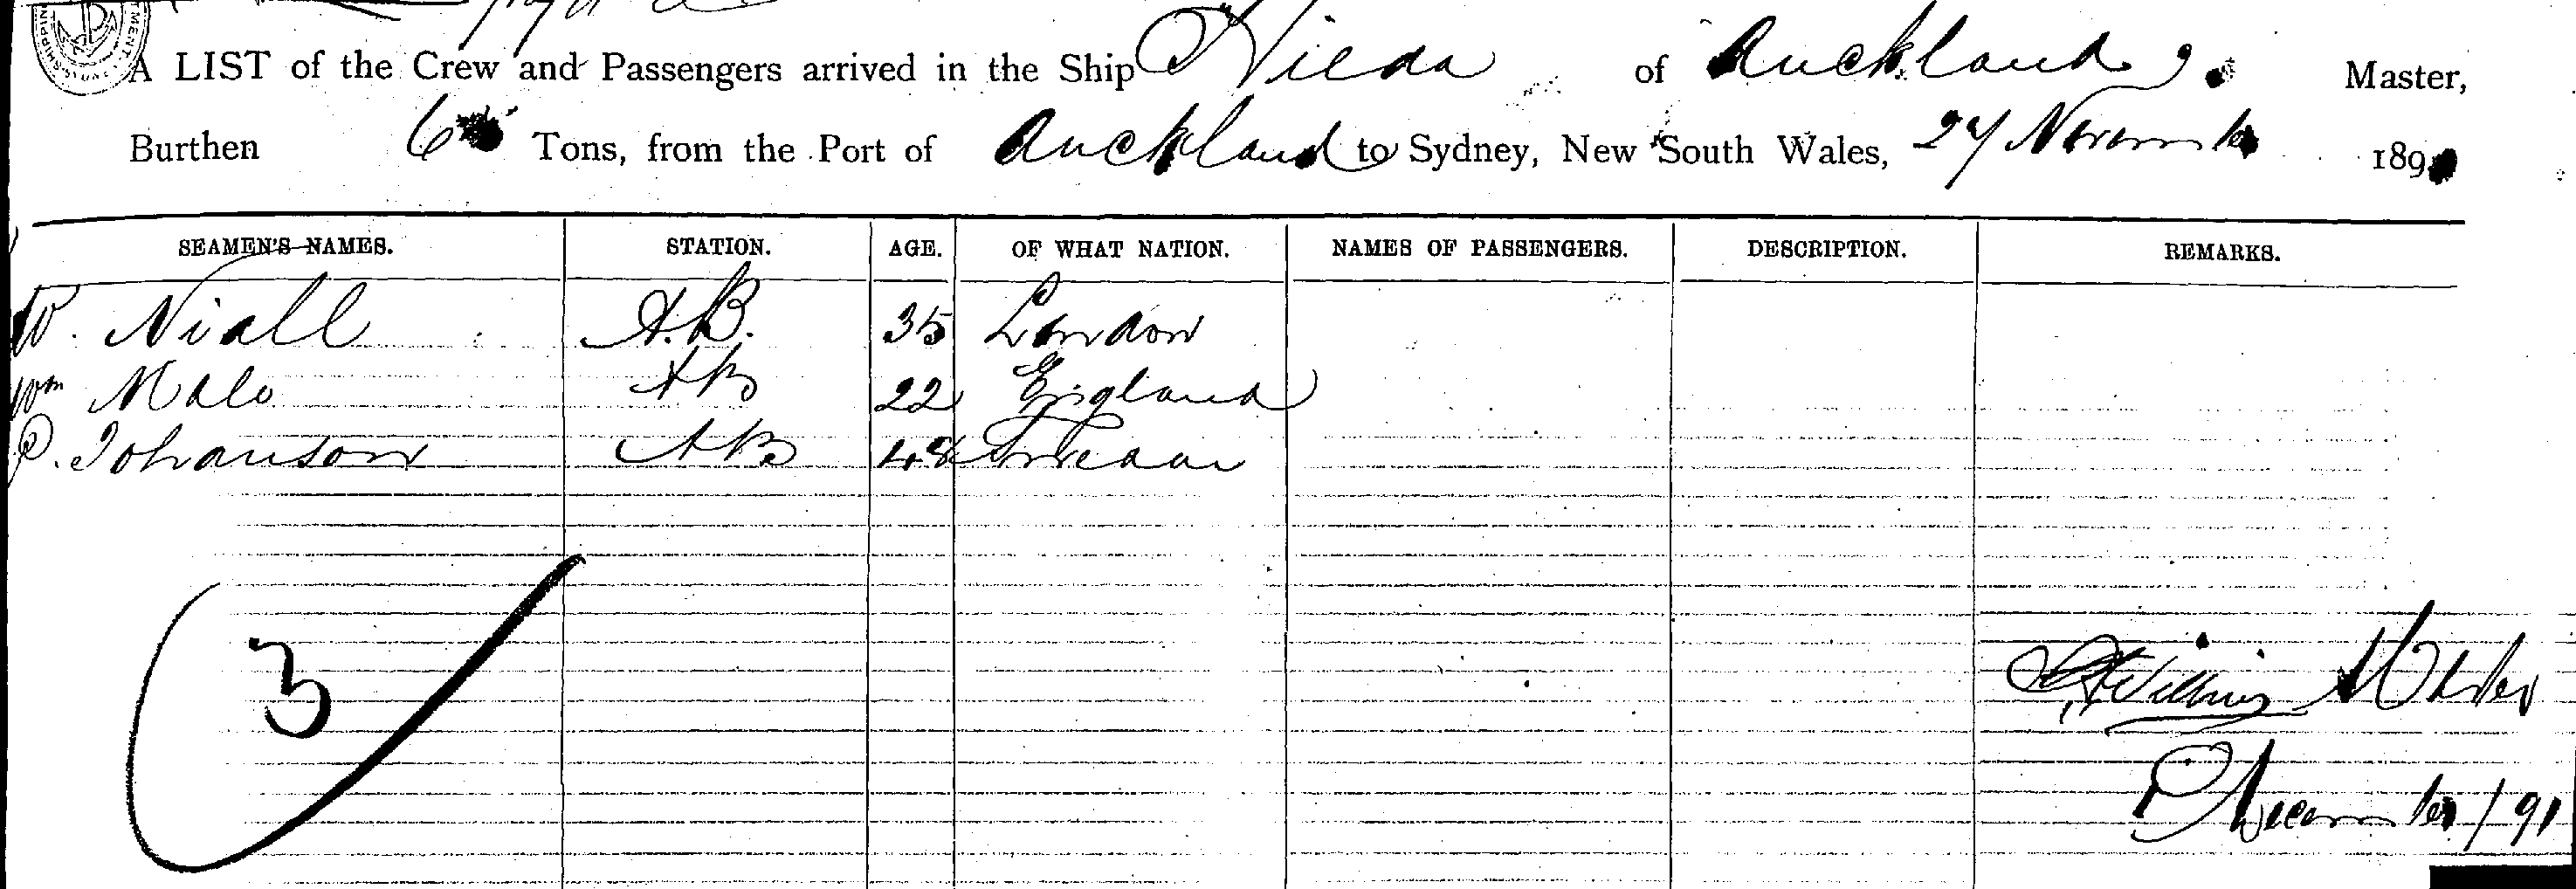 A LIST of the Crew and Passengers arrived in the Ship Hilda of Auckland, Master,
Burthen Tons, from the Port of Auckland to Sydney, New South Wales, 27 November 189
SEAMEN'S NAMES. STATION. AGE. OF WHAT NATION. NAMES OF PASSENGERS. DESCRIPTION. REMARKS.
W. Niall A.B. 35 London
Wm Malo AB 22 England
P. Johanson AB 48
3
Master
December / 91